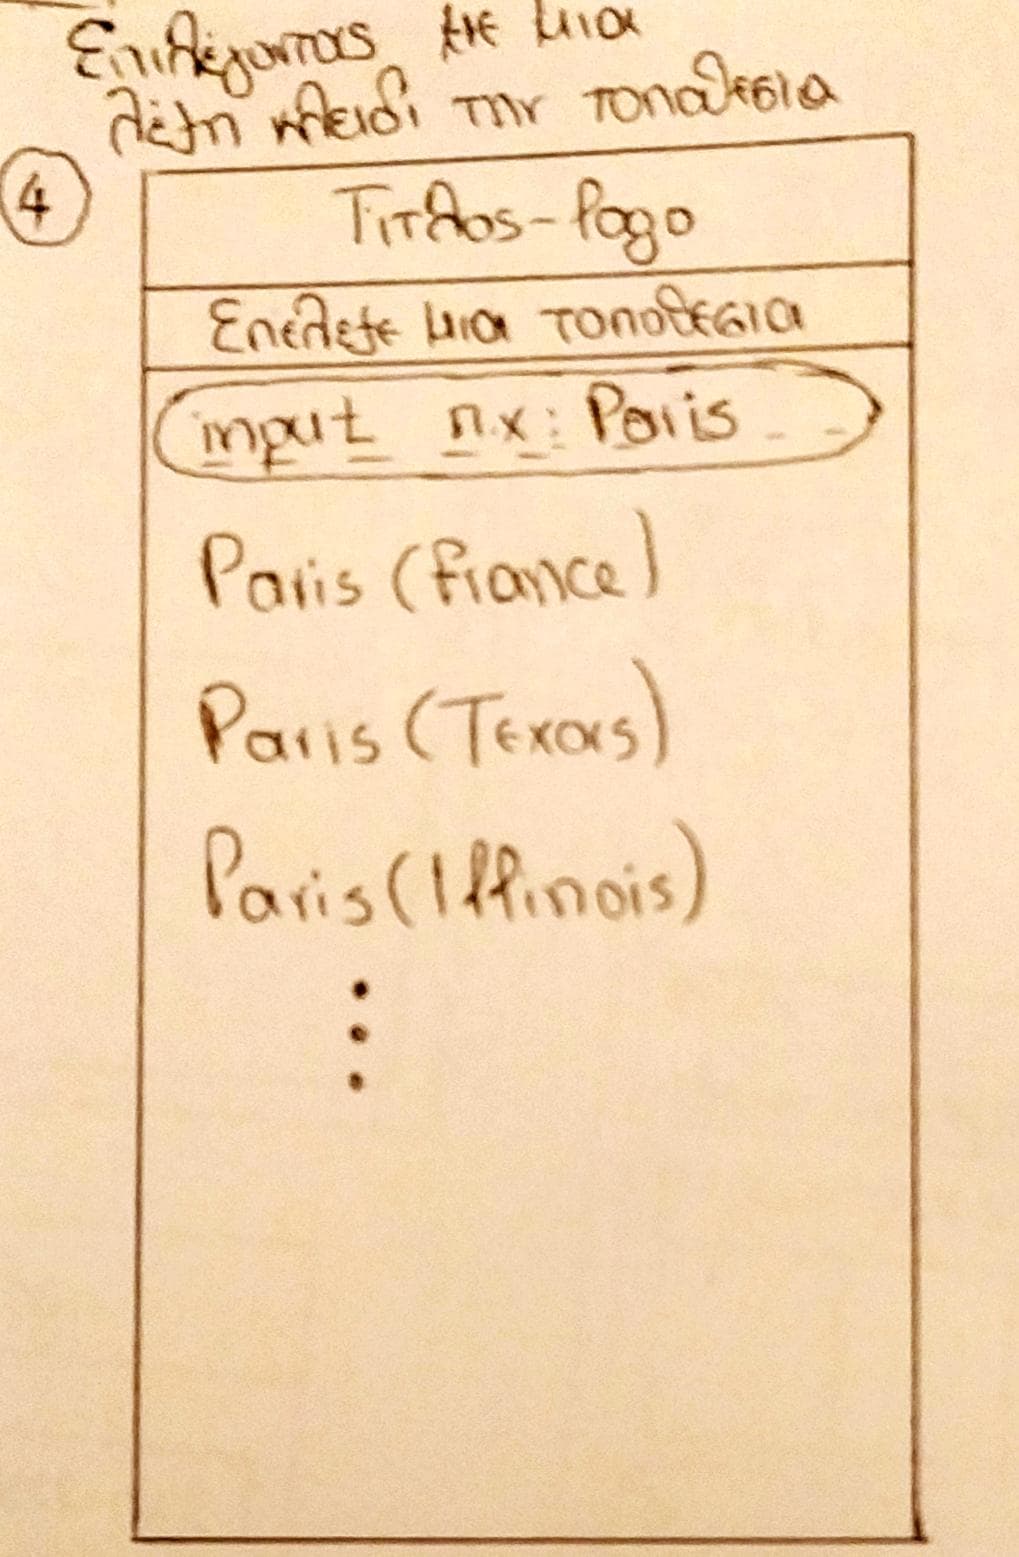 Επιλέγοντας με μια
λέξη κλειδί την τοποθεσια
4
Τιτλος-logo
Επελεξε μια τοποθεσια
input π.χ: Paris
Paris (france)
Paris (Texas)
Paris (Illinois)